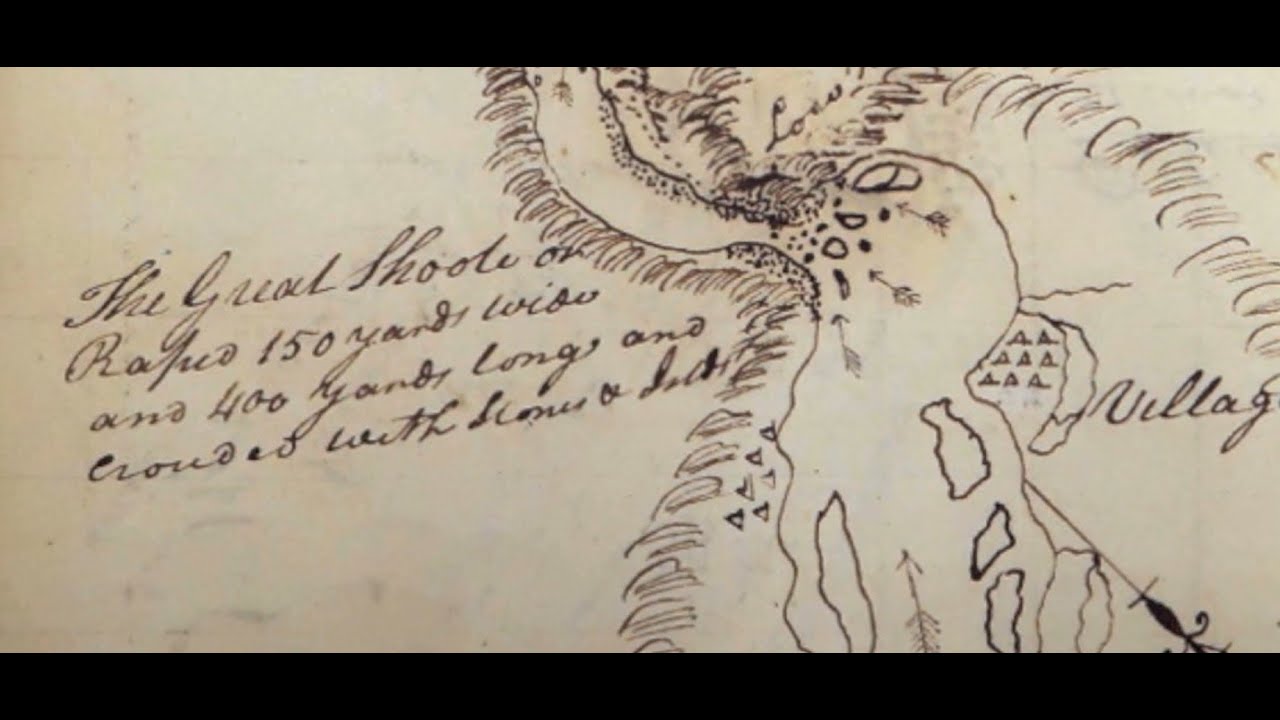 The Great Shoote or
Rapid 150 yards wide
and 400 yards long and
crouded with Stones &
Villag